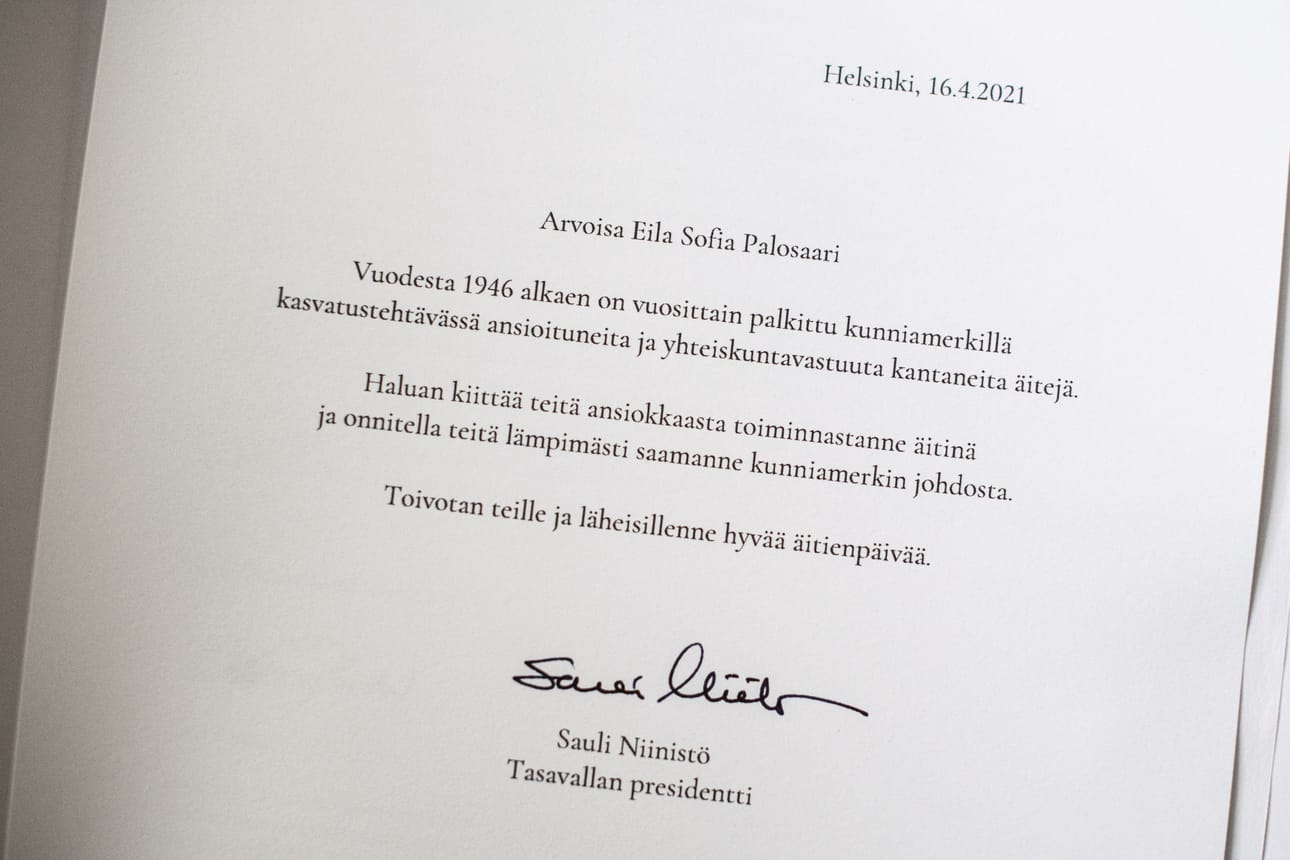 Helsinki, 16.4.2021
Arvoisa Eila Sofia Palosaari
Vuodesta 1946 alkaen on vuosittain palkittu kunniamerkillä
kasvatustehtävässä ansioituneita ja yhteiskuntavastuuta kantaneita äitejä.
Haluan kiittää teitä ansiokkaasta toiminnastanne äitinä
ja onnitella teitä lämpimästi saamanne kunniamerkin johdosta.
Toivotan teille ja läheisillenne hyvää äitienpäivää.
Sauli Niinistö
Sauli Niinistö
Tasavallan presidentti